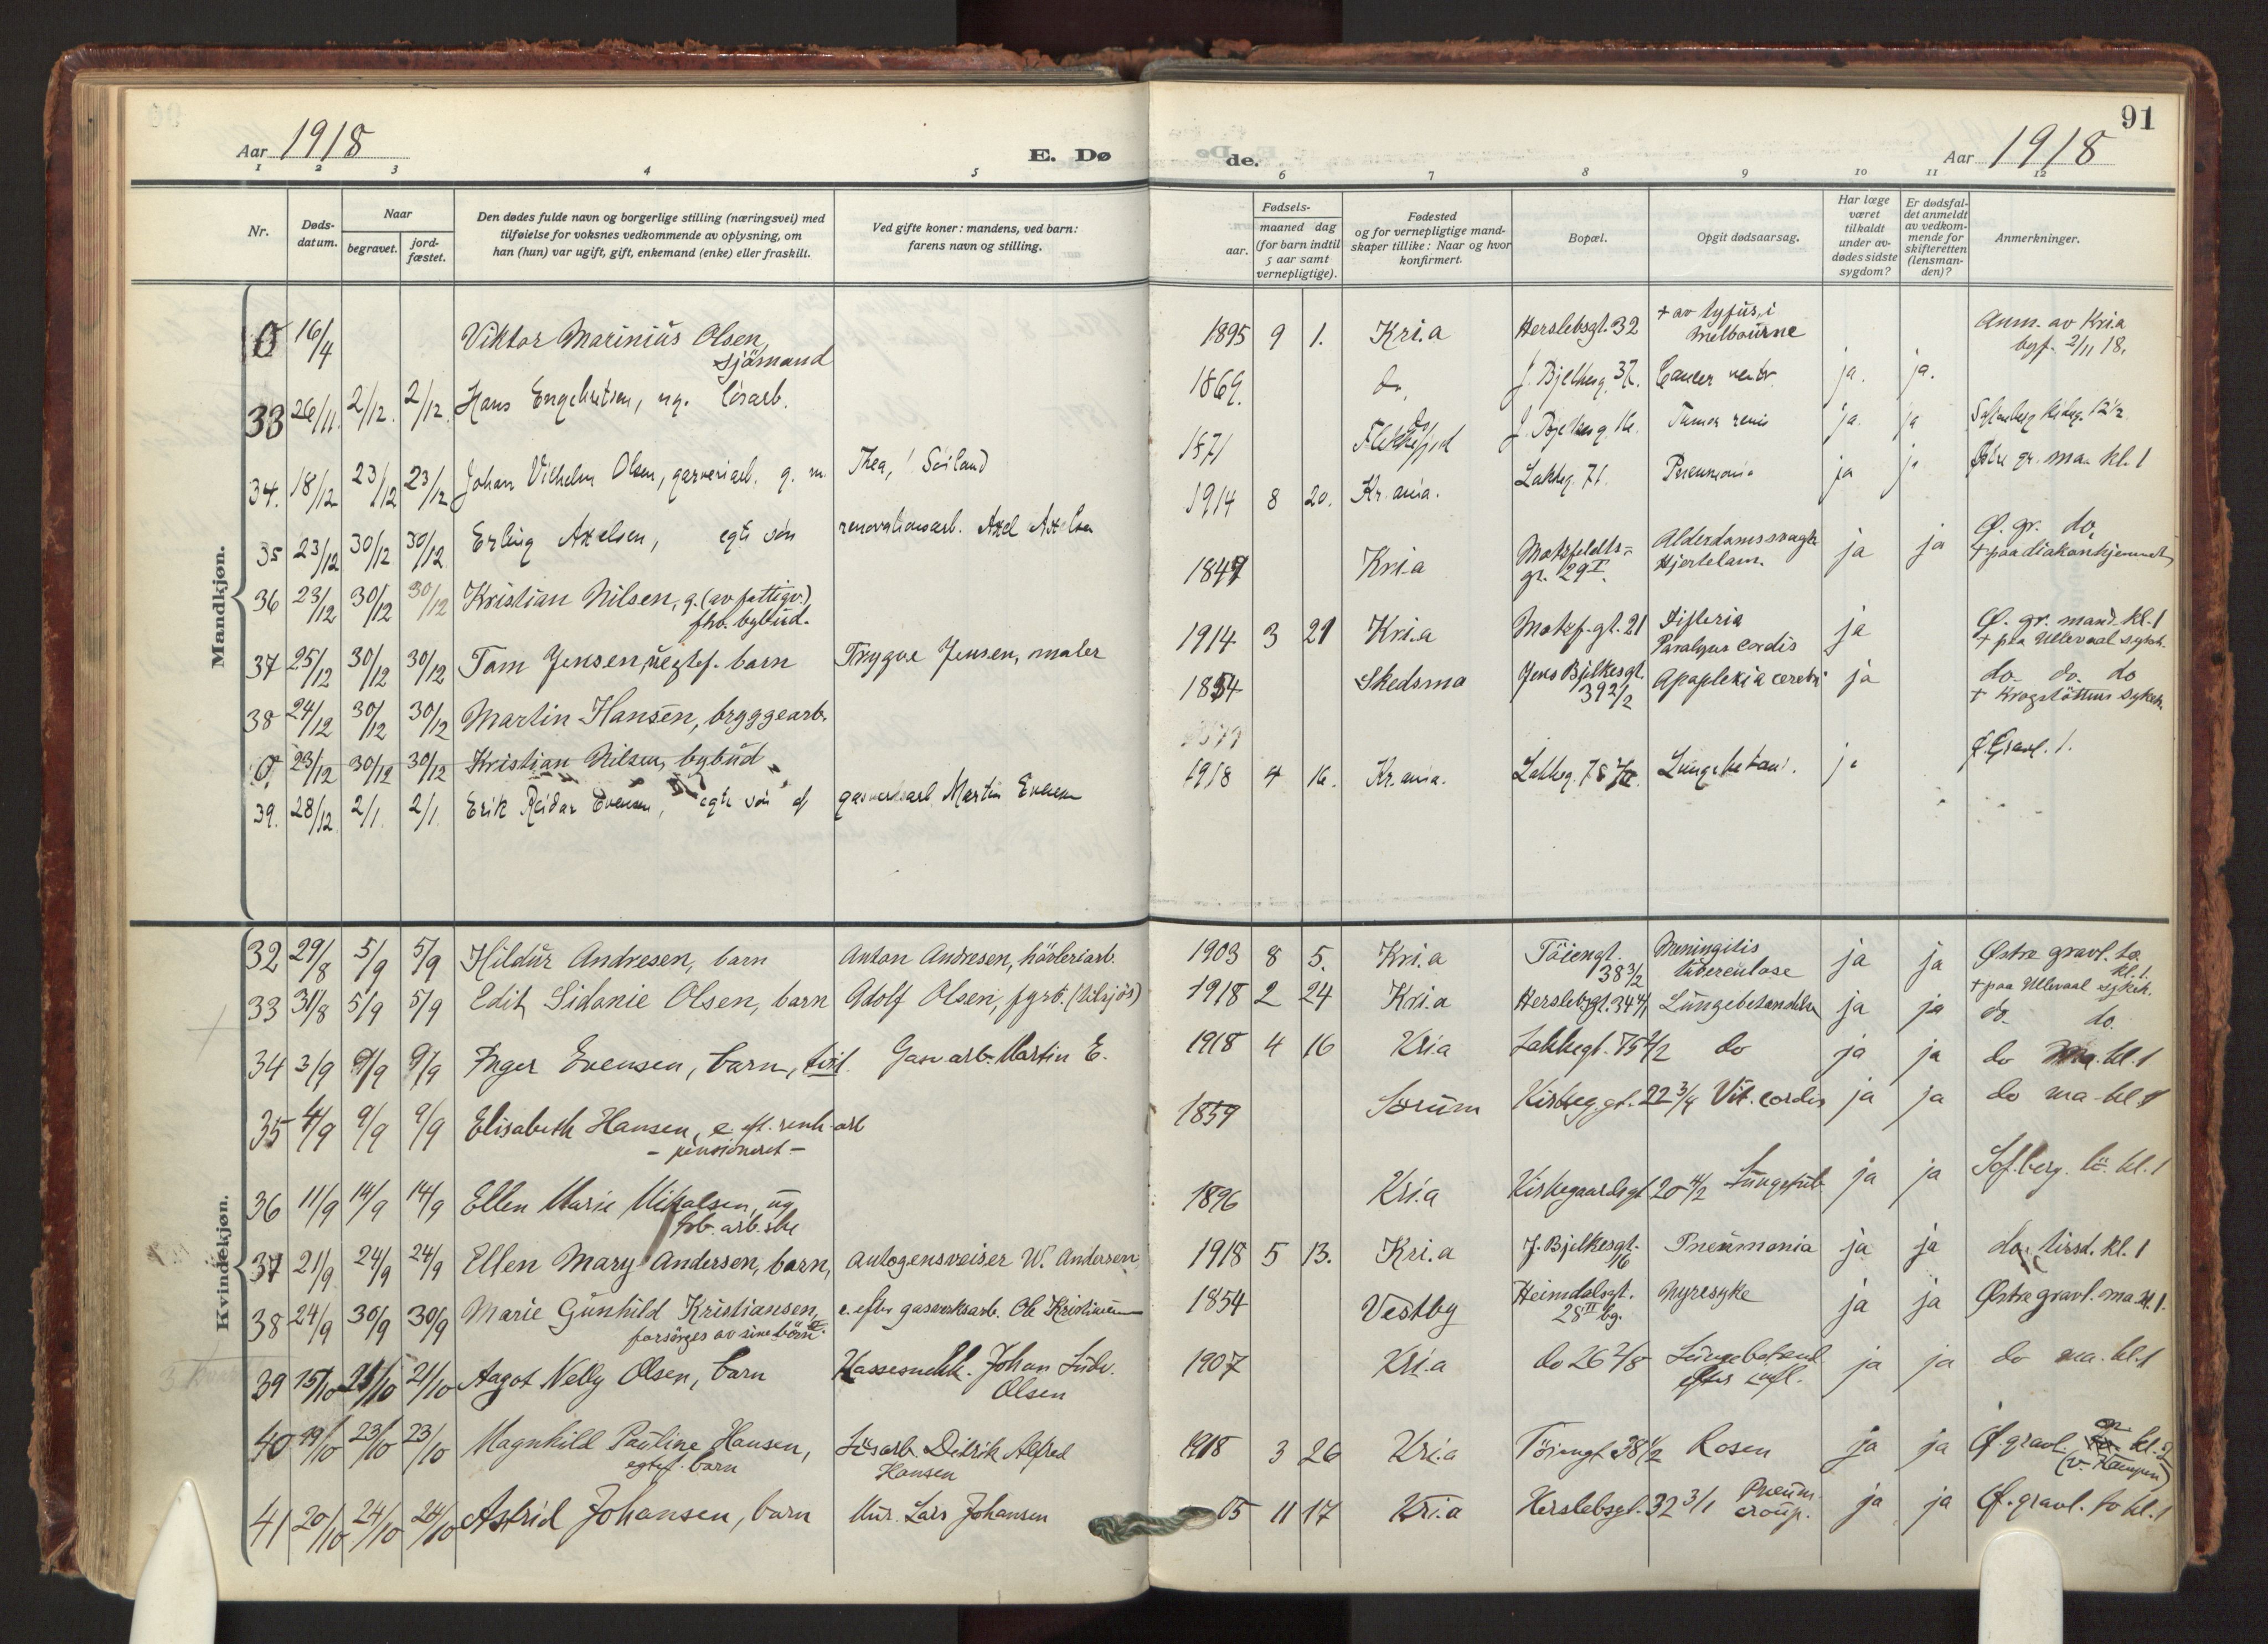 91
Aar 1918
E. Døde.
Aar 1918
1 2 3 4 5 6 7 8 9 10 11 12
Nr.
Dødsdatum.
Naar
begravet.
jordfæstet.
Den dødes fulde navn og borgerlige stilling (næringsvei) med
tilføielse for voksnes vedkommende av oplysning, om
han (hun) var ugift, gift, enkemand (enke) eller fraskilt.
Ved gifte koner: mandens, ved barn:
farens navn og stilling.
Fødsels-
aar.
maaned dag
(for barn indtil
5 aar samt
vernepligtige).
Fødested
og for vernepligtige mand-
skaper tillike: Naar og hvor
konfirmert.
Bopæl.
Opgit dødsaarsag.
Har læge
været
tilkaldt
under av-
dødes sidste
sygdom?
Er dødsfal-
det anmeldt
av vedkom-
mende for
skifteretten
(lensman-
den)?
Anmerkninger.
Mandkjøn.
0 16/4 Viktor Marinius Olsen, sjömand 1895 9 1. Kri.a Herslebsgt. 32 + av tyfus, i Melbourne Anm. av Kria byf. 2/11 18.
33 26/11 2/12 2/12 Hans Engebretsen, ug. løsarb. 1869. do, J. Bjelkesg. 37. Cancer ventr. ja. ja.
34. 18/12 23/12 23/12 Johan Vilhelm Olsen, garveriarb. g. m. Thea, 1871 Flekkefjord J. Bjelkesg. 16. Tumor renis ja. ja
35 23/12 30/12 30/12 Erling Axelsen, egte søn renovationsarb. Axel Axelsen 1914 8 20. Kr.ania. Lakkeg. 71. Pneumonia ja ja Østre gr. ma. kl. 1
36 23/12 30/12 30/12 Kristian Nilsen, g. (av fattigv.) fhv. bybud. 1847 Kri.a Motzfeldts- gt. 29 I. Alderdomssvagh. Hjertelam. ja ja Ø. gr. do, + paa diakonhjemmet
37 25/12 30/12 30/12 Tom Jensen, uegtef. barn Trygve Jensen, maler 1914 3 21 Kri.a Motzf.gt. 21 Difteria Paralysis cordis ja Ø. gr. mand. kl. 1 + paa Ullevaal sykeh.
38 24/12 30/12 30/12 Martin Hansen, bryggearb. 1854 Skedsmo Jens Bjelkesgt. 39 2/2 Apoplexia cerebri ja do do do + Krogstøttens sykeh.
0. 23/12 30/12 30/12 Kristian Nilsen, bybud
39. 28/12 2/1. 2/1. Erik Reidar Evensen, egte søn af gasverksarb. Martin Evensen 1918 4 16. Kr.ania. Lakkeg. 75 Lungebetænd. ja Ø. Gravl. 1.
Kvindekjøn.
32 29/8 5/9 5/9 Hildur Andresen, barn Anton Andresen, høvleriarb. 1903 8 5. Kri.a Töiengt. 38 3/2 Meningitis tuberculose ja ja Østre gravl. to. kl. 1. + paa Ullevaal sykeh.
33 31/8 5/9 5/9 Edith Sidonie Olsen, barn Adolf Olsen, fyrb. (tilsjös) 1918 2 24 Kri.a Herslebsgt. 34 4/1 Lungebetændelse ja ja do. do.
34 3/9 9/9 9/9 Inger Evensen, barn, tvil. Gasv.arb. Martin E. 1918 4 16 Kria Lakkegt. 75 2/2 do ja ja do ma. kl. 1
35 4/9 9/9 9/9 Elisabeth Hansen, e. eft. renh. arb - pensioneret - 1859 Sørum Kirkeg.gt. 22 3/4 Vit. cordis ja ja do ma. kl. 1
36 11/9 14/9 14/9 Ellen Marie Mikalsen, ug fab. arb.ske 1896 Kri.a Kirkegaardsgt 20 4/2 Lungetub. ja ja Sof.berg. lö. kl. 1
37 21/9 24/9 24/9 Ellen Mary Andersen, barn, autogensveiser W. Andersen 1918 5 13. Kri.a J. Bjelkesgt. 16 Pneumonia ja ja do, tirsd. kl. 1
38 24/9 30/9 30/9 Marie Gunhild Kristiansen, forsörges av sine börn e. efter gasverksarb. Ole Kristiansen 1854 Vestby Heimdalsgt. 28 III bg. Nyresyke ja ja Østre gravl. ma. kl. 1.
39 15/10 21/10 21/10 Aagot Nelly Olsen, barn Kassesnekk. Johan Ludv. Olsen 1907 Kri.a do 26 2/8 Lungebetænd. efter infl. ja ja do ma. kl. 1
40 19/10 23/10 23/10 Magnhild Pauline Hansen, egtef. barn Løsarb. Didrik Alfred Hansen 1918 3 26 Kri.a Töiengt 38 1/2 Rosen ja ja Ø. gravl. on kl. 2 (v. Kampen)
41 20/10 24/10 24/10 Astrid Johansen, barn Mur. Lars Johansen 05 11 17 Kri.a Herslebsgt. 32 3/1 Pneum. croup. ja ja Ø. gravl. to kl. 1